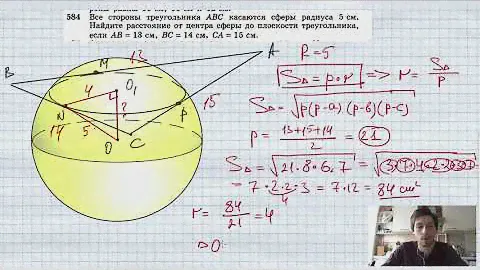 584 Все стороны треугольника ABC касаются сферы радиуса 5 см.
Найдите расстояние от центра сферы до плоскости треугольника,
если AB = 13 см, BC = 14 см, CA = 15 см.
13
A
R = 5
B
M
4
O₁
S△ = p·r => r = S△/p
N
?
P
15
14
5
S△ = √p(p-a)(p-b)(p-c)
O
C
p = (13+15+14)/2 = 21
S△ = √21·8·6·7 = √3·7·4·2·2·3·7 =
= 7·2·2·3 = 7·12 = 84 см²
4
r = 84/21 = 4
△O